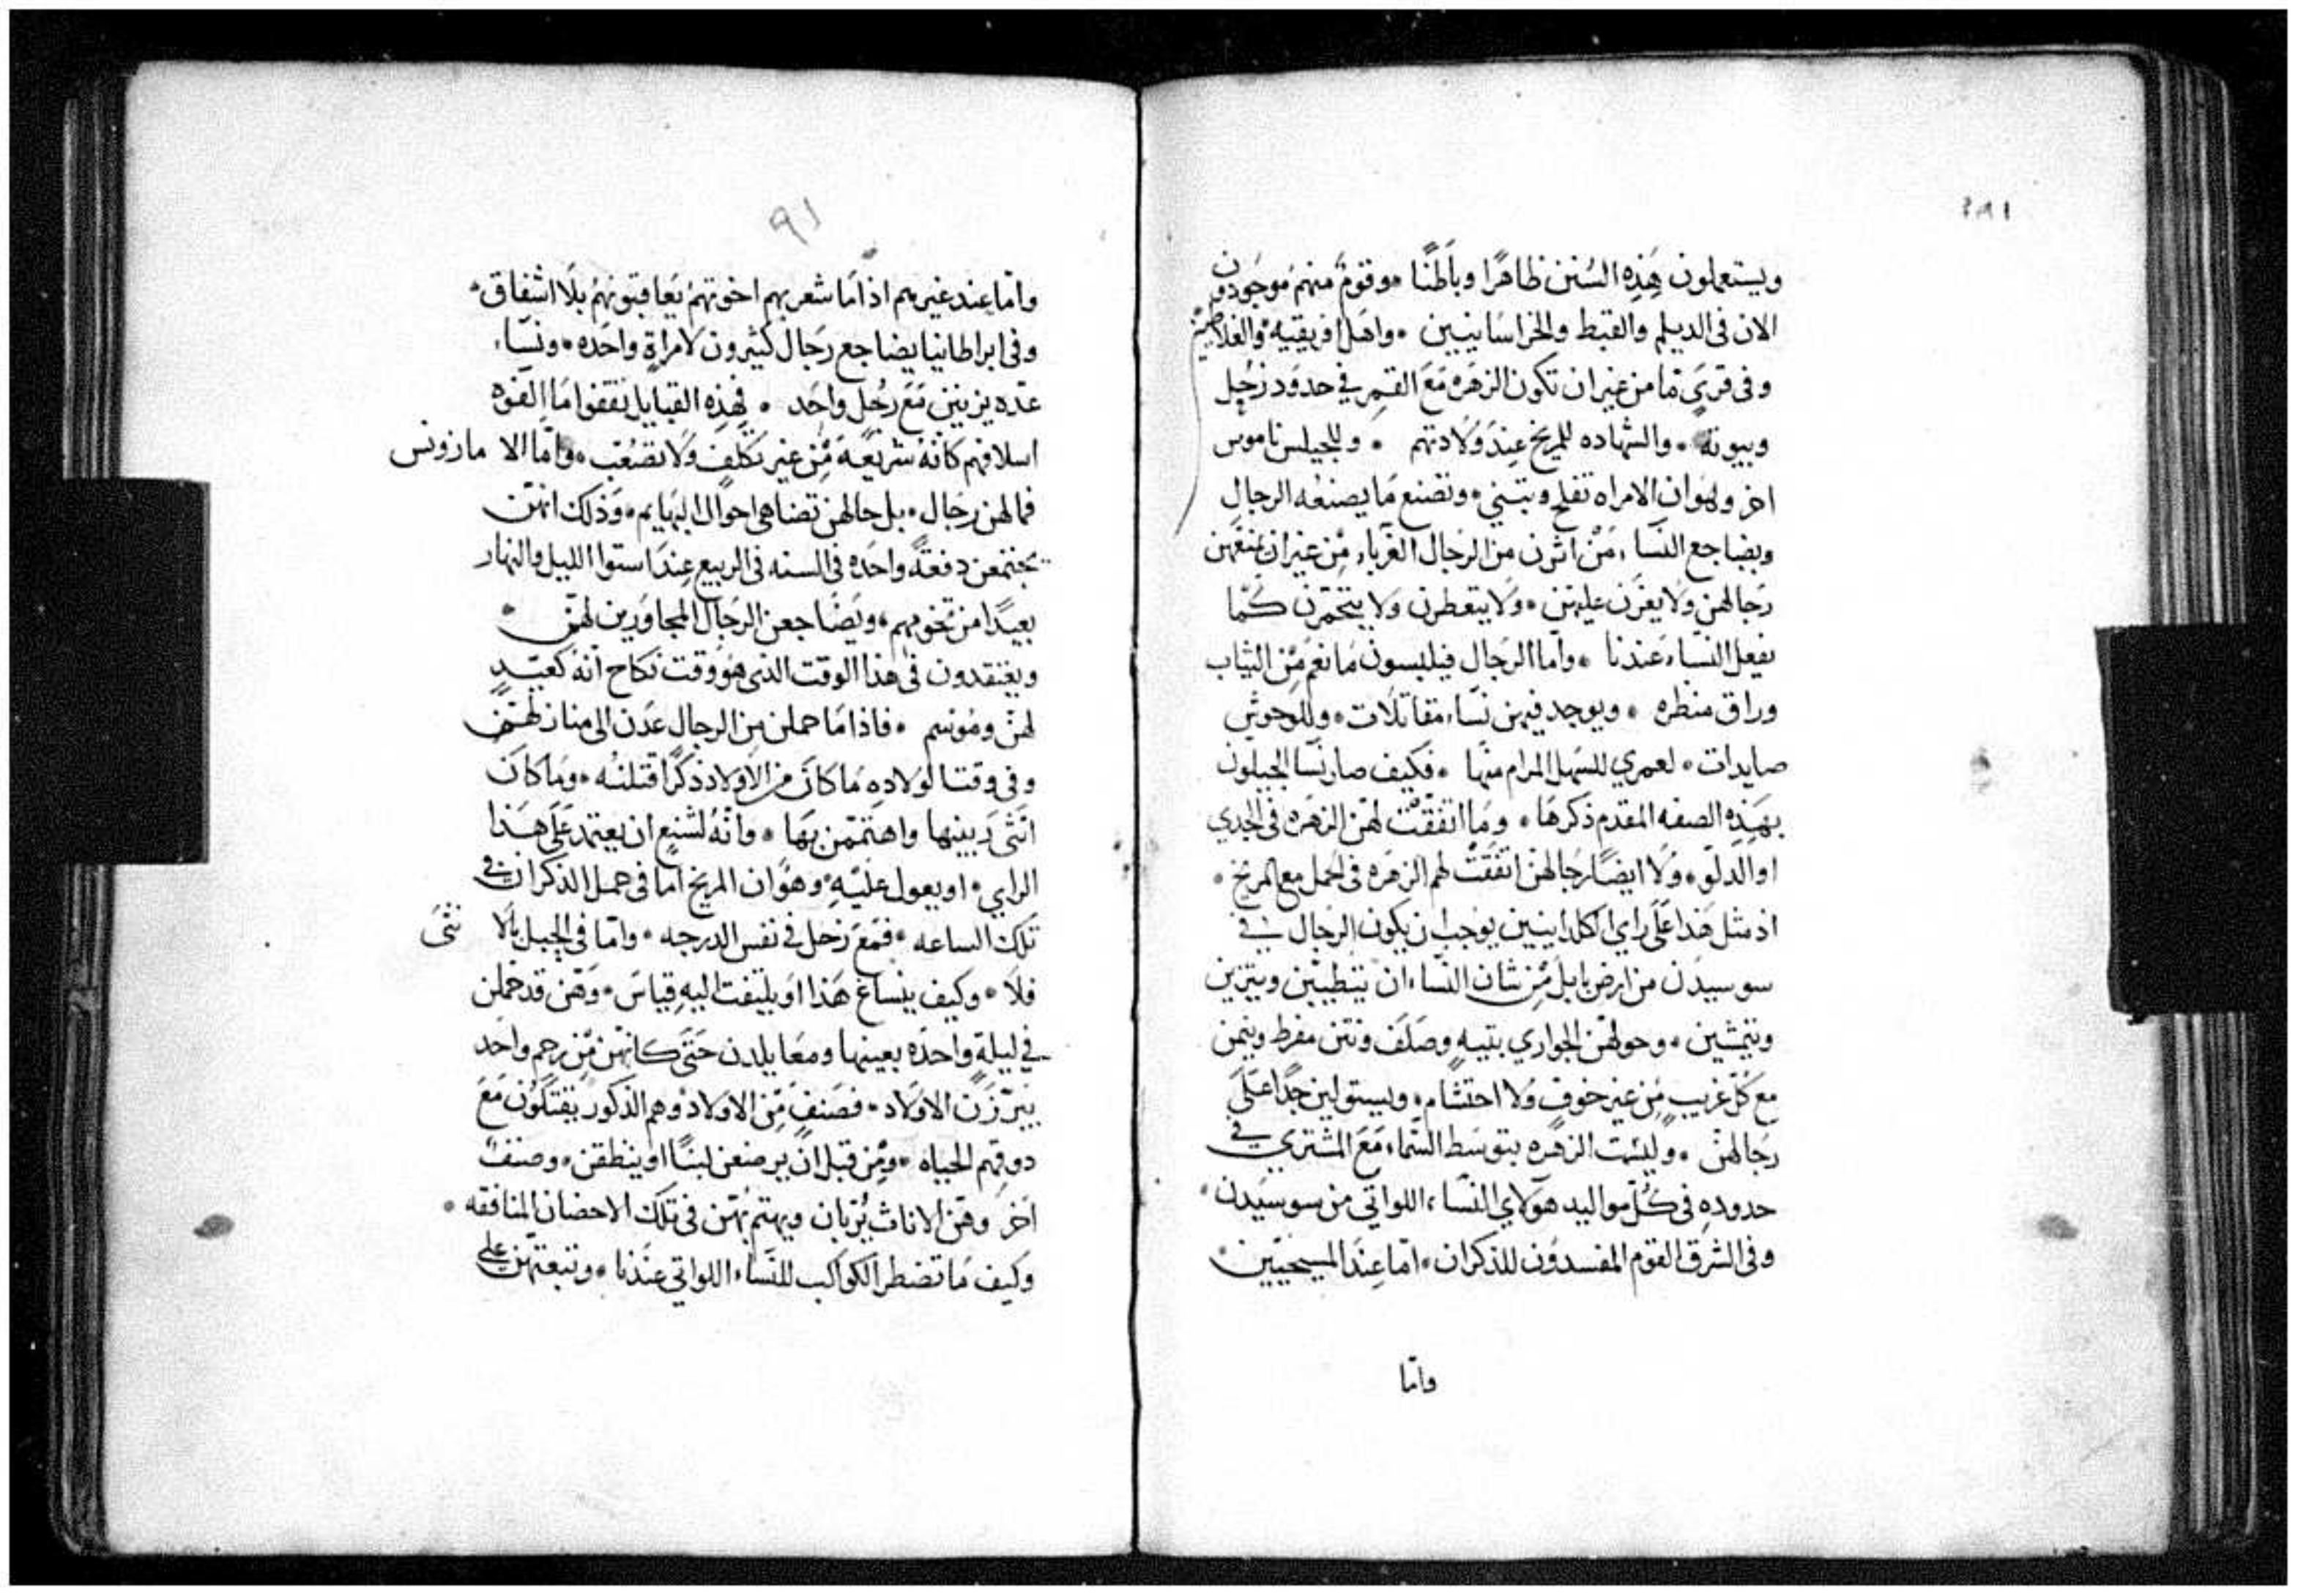 ويستعملون هَذِه السُنن ظاهرًا وباطنًا ۰ وقومٌ منهم موجودون
الان فى الديلم والقبط والخراسانيين ۰ واهل افريقيه
وفى قرىً ما من غير ان تكون الزهَره مَعَ القمر في حدود زحل
وبيوته ۰ والشهاده للمريخ عِندَ وَلادتهم ۰ وللجيلس ناموس
اخر وهوان الامراه تفلح وتبتني ۰ وتصنع مَا يصنعُه الرجال
ويضاجع النساء مَنْ اثرن من الرجال الغرباء مِن غير ان يمنعهن
رجالهن وَلا يغَرن عليهن ۰ وَلا يتعطرن وَلا يتختمن كمَا
يفعل النسَاء عندنا ۰ واما الرجَال فيلبسون مَا نعم مِن الثياب
وراق منظره ۰ ويوجد فيهن نسَاء مقاتلات ۰ وللوحوش
صايدات ۰ لعمري للسَهل المرام منها ۰ فكيف صار نسَا الجيلون
بهَذِه الصفه المقدم ذكرهَا ۰ ومَا اتفقت لهن الزهَره فى الجدي
او الدلو ۰ وَلا ايضًا رجالهن اتفقت لهم الزهَره فى الحمل مع المريخ ۰
اذ مثل هَذا عَلى راي الكلدانيين يوجب ان يكون الرجال في
سوسيدن من ارض بابل مِن شان النسَاء ان يتطيبن ويتزين
ويتمشين ۰ وحولهن الجواري بتيهٍ وصَلَف ونتن مفرط وينمن
مع كل غريب مِن غير خوفٍ وَلا احتشام ۰ ويستولين جدًا عَلى
رجَالهن ۰ وليست الزهَره بتوسَط السَماء مَعَ المشتري في
حدودهِ فى كُل مواليد هَولاي النسَاء اللواتي من سوسيدن ۰
وفى الشرق القوم المفسدون للذكران ۰ امّا عِندَ المسيحيين ۰
وامّا
٩١
وامّا عند غيرهم اذا مَا شعر بهم اخوتهم يعَاقبونهم بلا اشفاق ۰
وفى ابراطانيا يضاجع رجَال كثيرون لامراةٍ واحَده ۰ ونسَاء
عدّه يزنين مَعَ رجُل واحَد ۰ فهذِه القبايل يقتفوا مَا الفوه
اسلافهم كانه شريعَة مِن غير تكلفٍ وَلا تصَعُّب ۰ وامّا الا مازونس
فما لهن رجَال ۰ بل حالهن تضاهى احوال البهَايم ۰ وذلك انهن
يجتمعن دفعةً واحَده فى السنه فى الربيع عِندَ استوا الليل والنهار
بعيدًا من تخومهم ۰ ويضَاجعن الرجَال المجاورين لهن ۰
ويعتقدون فى هذا الوقت الذى هُو وقت نكاح انه كعيدٍ
لهن ومُوسم ۰ فاذا مَا حملن من الرجال عدن الى منازلهن
وفى وقت الولاده مَا كانَ من الاولاد ذكرًا قتلنه ۰ ومَا كان
انثى ربينها واهتممن بهَا ۰ وانه لشنع ان يعتمد عَلى هَذا
الراي ۰ او يعول عليهِ ۰ وهوان المريخ اما فى حمل الذكران في
تلك الساعه ۰ فمَعَ زحل في نفس الدرجه ۰ وامّا فى الحبل بالا نثى
فلا ۰ وكيف ينساغ هَذا او يلتفت اليهِ قياس ۰ وهن قد حملن
في ليلةٍ واحده بعينها ومعَا يلدن حَتى كانهن مِن رحم واحد
يبرزن الاولاد ۰ فصَنفٍ مِن الاولاد وهم الذكور يفتكون مَعَ
ذوقهم الحياه ۰ ومِن قبل ان يرضعن لبنًا او ينطقن ۰ وصنف
اخر وهن الاناث يُربان ويهتم بهن فى تلك الاحضان المنافقه ۰
وكيف مَا تضطر الكواكب للنسَاء اللواتي عندنا ۰ وتبعتهن على